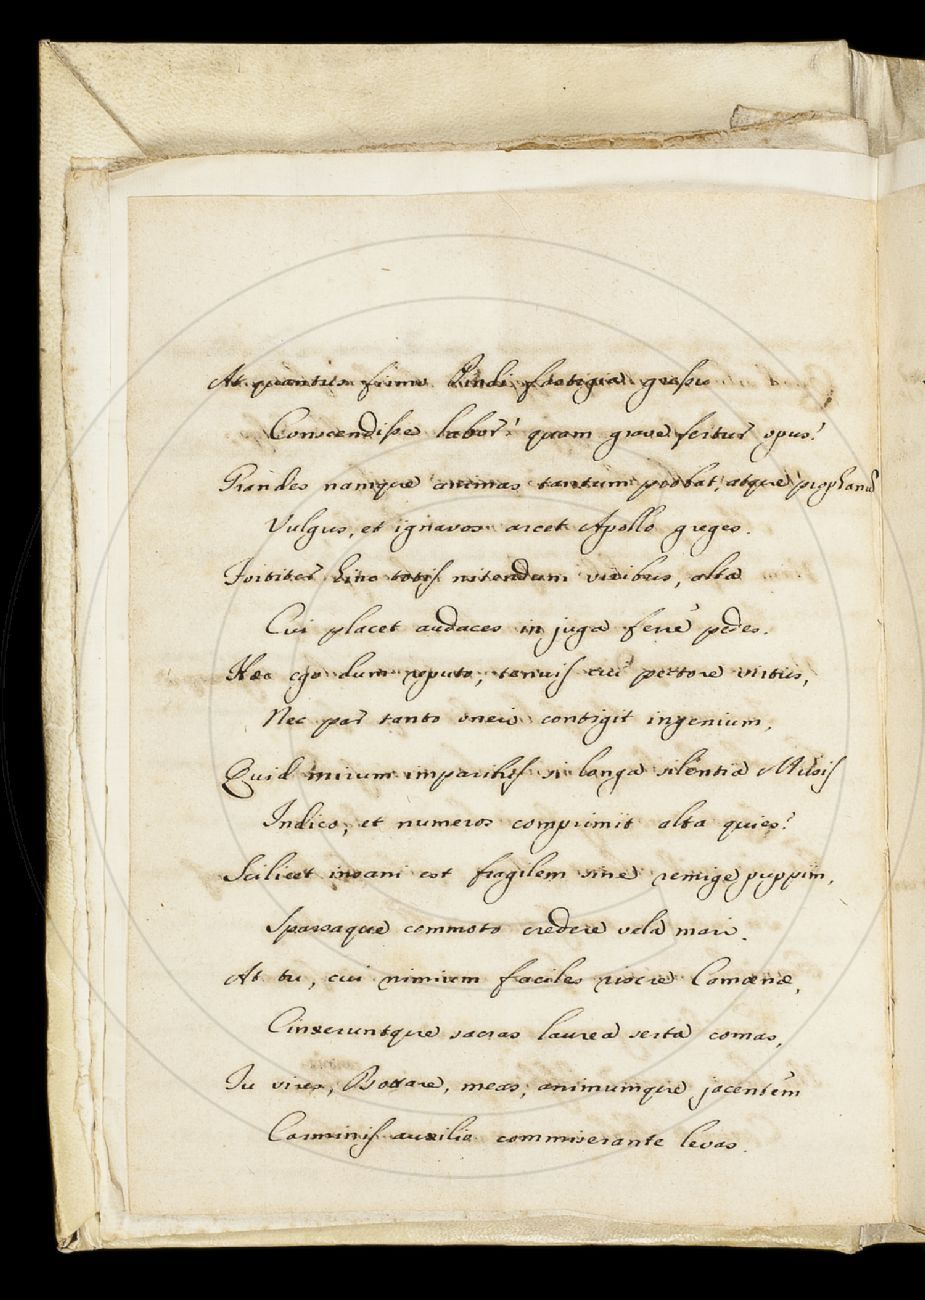 At quantus firmo Pindi fastigia greßu
Conscendiße labor! quam grave fertur opus!
Grandes namque animas tantum probat, atque prophanũ
Vulgus, et ignavos arcet Apollo greges.
Fortiter hinc totis nitendum viribus, alta
Cui placet audaces in juga ferre pedes.
Hæc ego dum reputo, tenuis cui pectore virtus,
Nec par tanto oneri contigit ingenium,
Quid mirum imparibus si longa silentia Musis
Indico, et numeros comprimit alta quies?
Scilicet insani est fragilem sine remige puppim,
Sparsaque commoto credere vela mari.
At tu, cui nimium faciles risere Camœnæ,
Cinxeruntque sacras laurea serta comas,
Tu vires, , meas, animumque jacentem
Carminis auxilio commiserante levas.